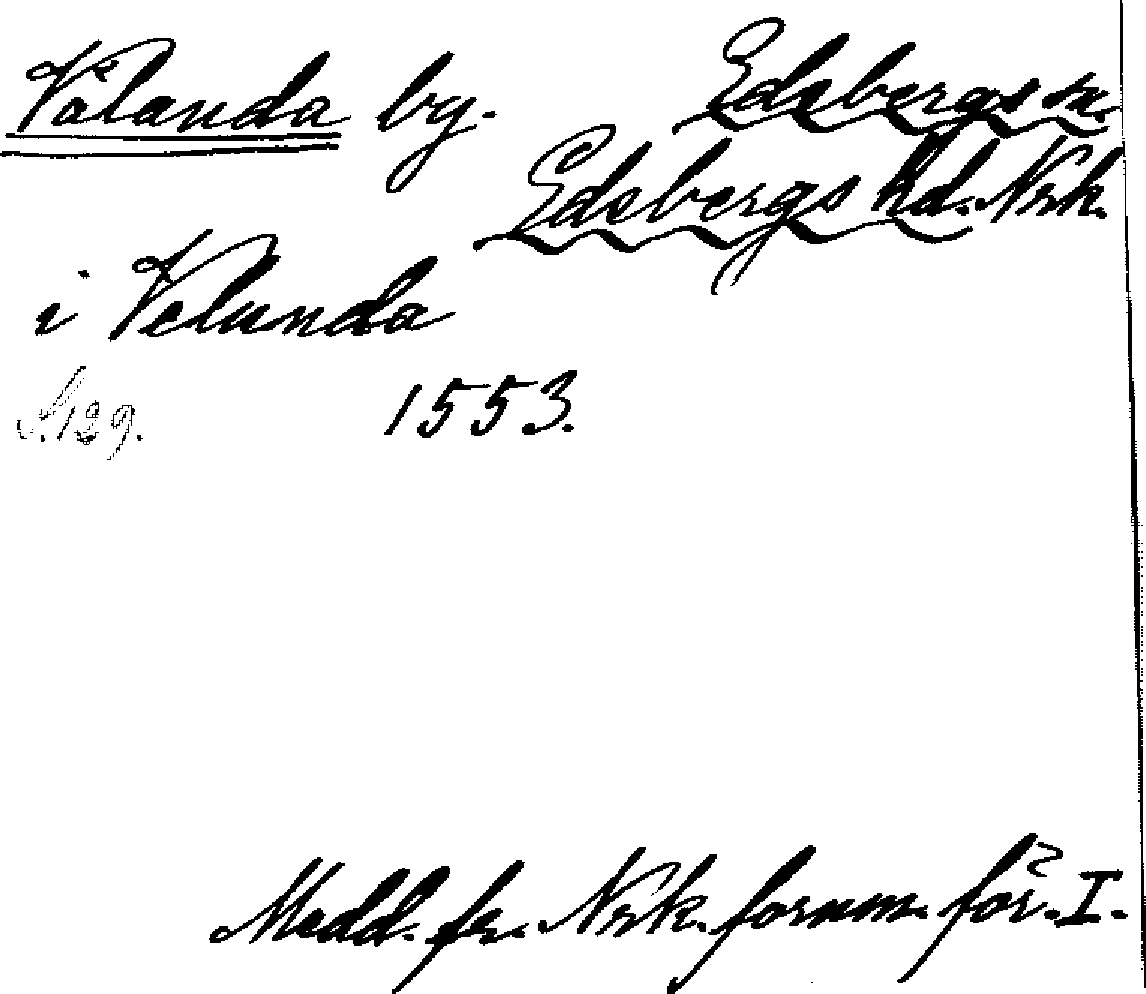 Vålanda by. Edsbergs sn.
Edsbergs hd. Nrk.
i Velunda
S. 129. 1553.
Medd. fr. Nrk. fornm. för. I.